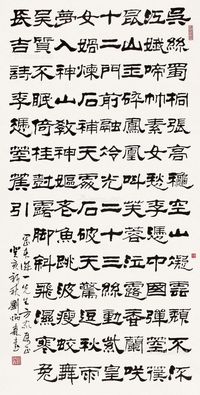 吳絲蜀桐張高穐空山凝雲頹不流
江娥啼竹素女愁李憑中國彈箜篌
崑山玉碎鳳皇叫芙蓉泣露香蘭咲
十二門前融冷光二十三絲動紫皇
女媧煉石補天處石破天驚逗秋雨
夢入神山教神嫗老魚跳波瘦蛟舞
吳質不眠倚桂樹露腳斜飛濕寒兔
長吉詩李憑箜篌引
陳先生方家正
癸亥初秋劉炳森書